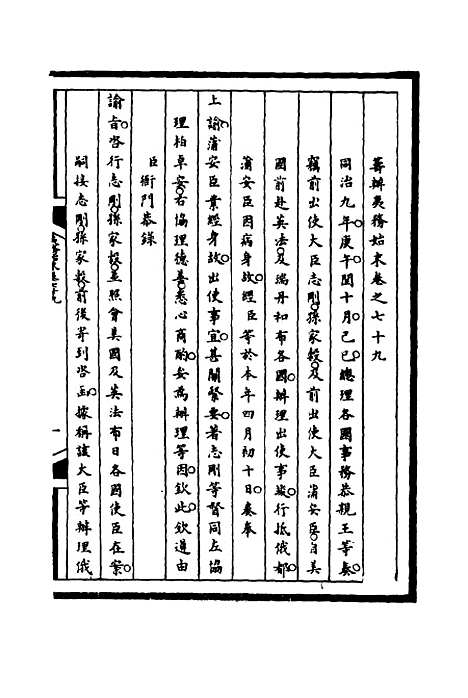 籌辦夷務始末卷之七十九
同治九年庚午閏十月。己巳。總理各國事務恭親王等奏。
竊前出使大臣志剛。孫家穀。及前出使大臣蒲安臣。自美
國前赴英法。及瑞丹和布各國。辦理出使事竣。行抵俄都。
蒲安臣因病身故。經臣等於本年四月初十日。奏奉
上諭。蒲安臣業經身故。出使事宜。甚關緊要。著志剛等督同左協
理柏卓安。右協理德善。悉心商酌。妥為辦理等因。欽此。欽遵由
臣衙門恭錄
諭旨。咨行志剛。孫家穀。並照會美國及英法布日各國使臣在案。
嗣接志剛。孫家穀。前後寄到咨函。據稱該大臣等辦理俄